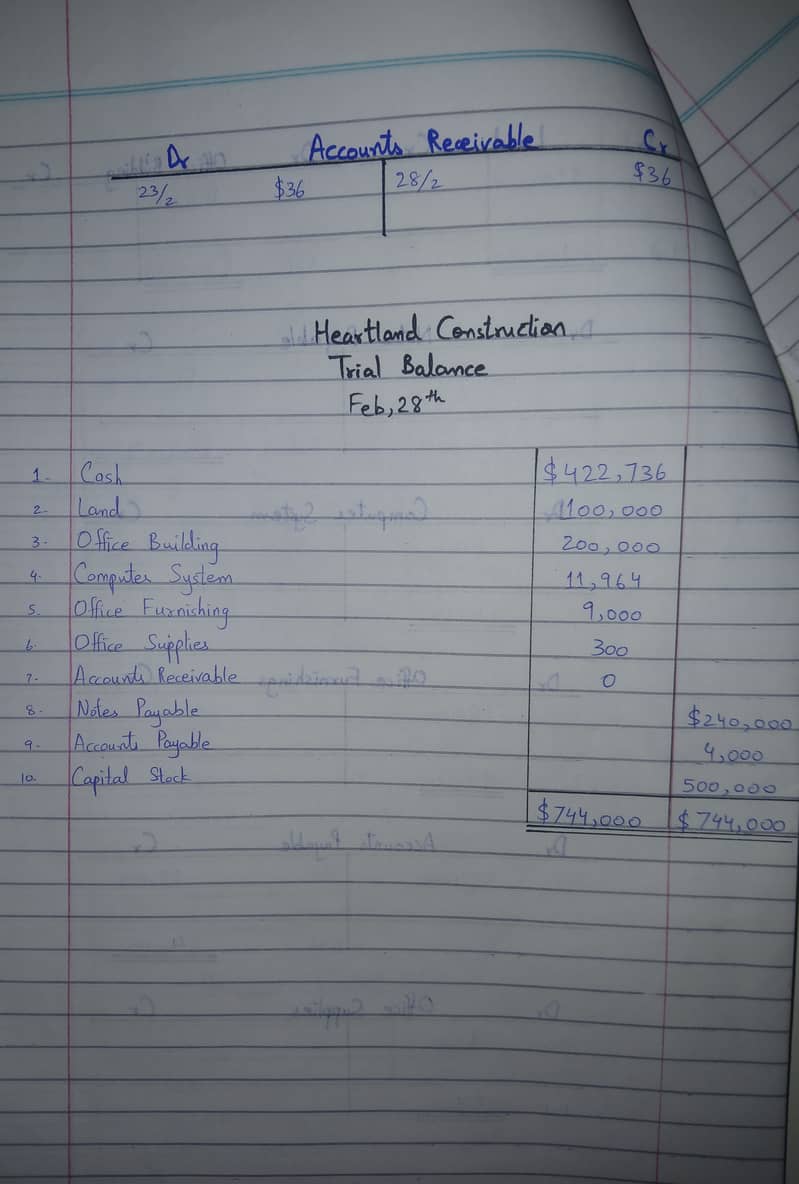 Dr Accounts Receivable Cr
23/2 $36 28/2 $36
Heartland Construction
Trial Balance
Feb, 28th
1. Cash $422,736
2. Land 100,000
3. Office Building 200,000
4. Computer System 11,964
5. Office Furnishing 9,000
6. Office Supplies 300
7. Accounts Receivable 0
8. Notes Payable $240,000
9. Accounts Payable 4,000
10. Capital Stock 500,000
$744,000 $744,000